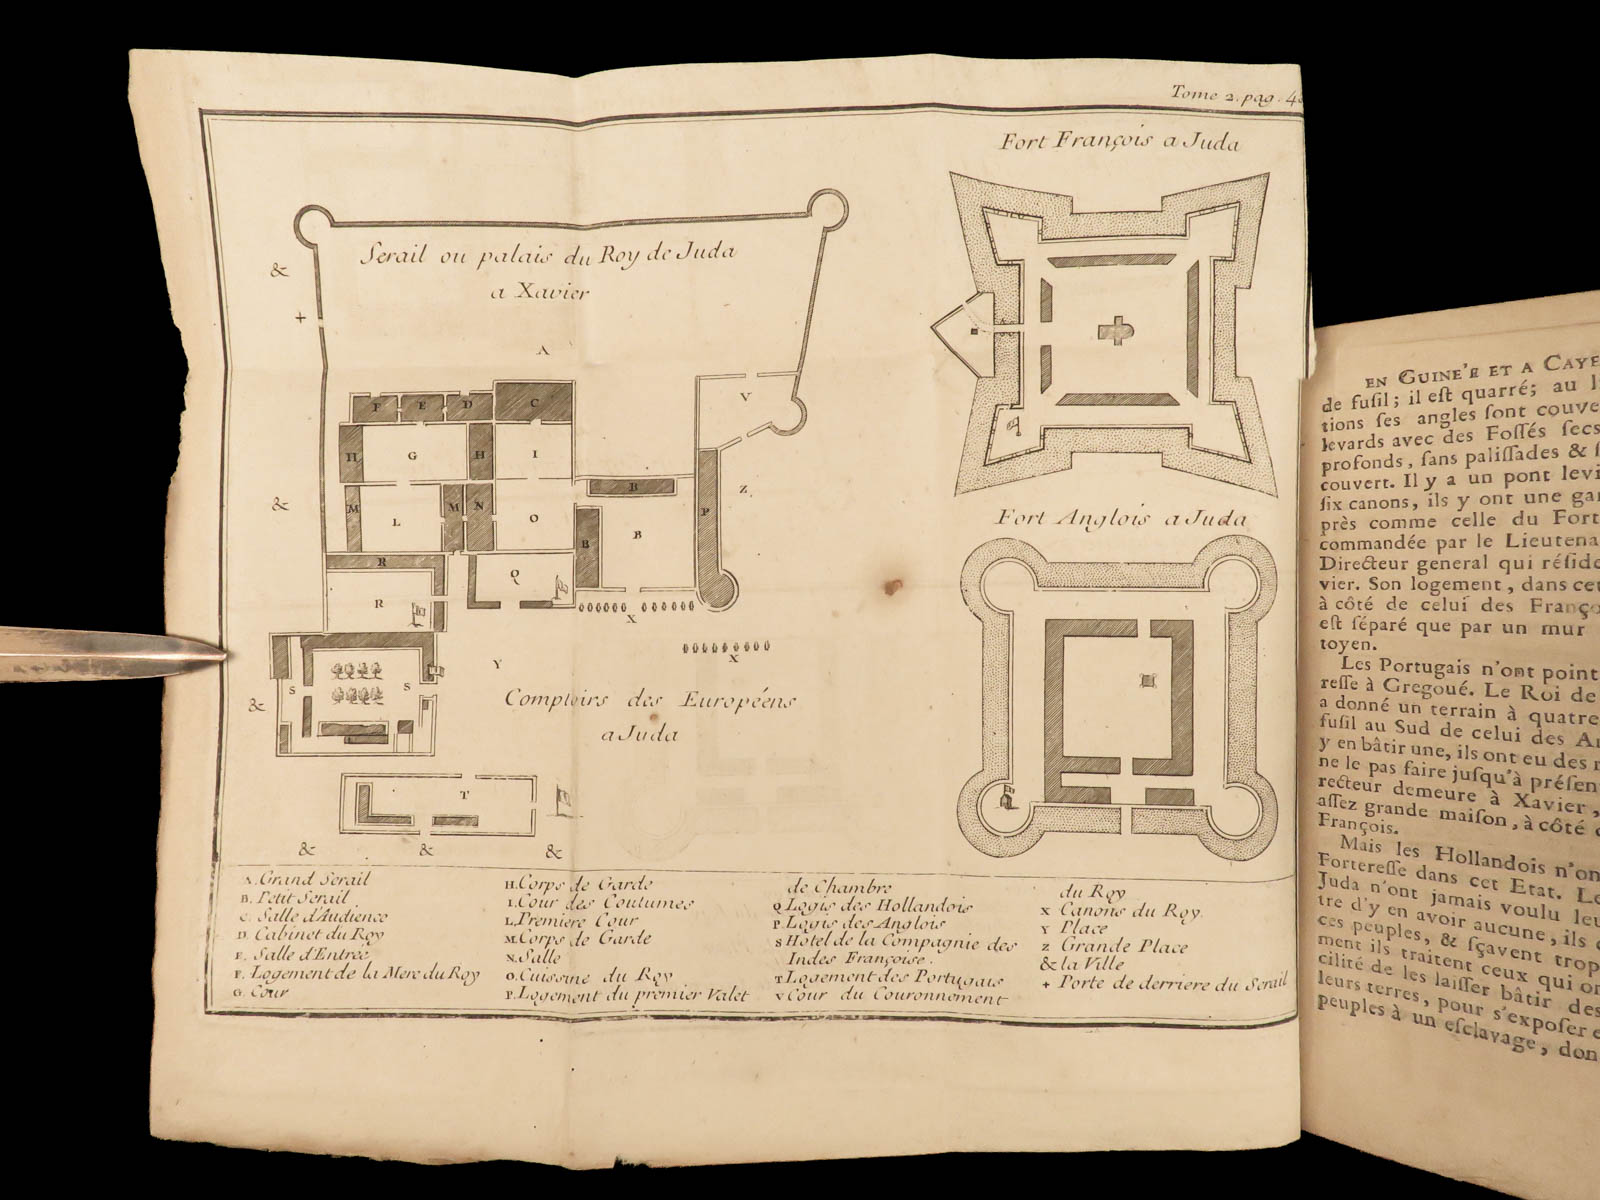 Tome 2. pag. 4
Fort François a Juda
Serail ou palais du Roy de Juda
a Xavier
&
+
A
F E D C
V
H G H I
B
Z
M L M N O
P
B B
R
Q
R
X
X
S S
Y
&
&
Comptoirs des Européens
a Juda
T
& & &
Fort Anglois a Juda
A. Grand Serail
B. Petit Serail
C. Salle d'Audience
D. Cabinet du Roy
E. Salle d'Entrée
F. Logement de la Mere du Roy
G. Cour
H. Corps de Garde
I. Cour des Coutumes
L. Premiere Cour
M. Corps de Garde
N. Salle
O. Cuissine du Roy
P. Logement du premier Valet
de Chambre
Q Logis des Hollandois
P. Logis des Anglois
S Hotel de la Compagnie des
Indes Françoise.
T Logement des Portugais
V Cour du Couronnement
du Roy
X Canons du Roy.
Y Place
Z Grande Place
& la Ville
+ Porte de derriere du Serail
EN GUINE'E ET A CAYE
de fusil ; il est quarré; au l
tions ses angles sont couve
levards avec des Fossés secs
profonds, sans palissades &
couvert. Il y a un pont levi
six canons, ils y ont une ga
près comme celle du Fort
commandée par le Lieutena
Directeur general qui réside
vier. Son logement, dans cet
à côté de celui des Franço
est séparé que par un mur
toyen.
Les Portugais n'ont point
resse à Gregoué. Le Roi de
a donné un terrain à quatre
fusil au Sud de celui des A
y en bâtir une, ils ont eu des
ne le pas faire jusqu'à présen
recteur demeure à Xavier,
assez grande maison, à côté
François.
Mais les Hollandois n'on
Forteresse dans cet Etat. Le
Juda n'ont jamais voulu leu
tre d'y en avoir aucune, ils
ces peuples, & sçavent trop
ment ils traitent ceux qui on
cilité de les laisser bâtir des
leurs terres, pour s'exposer
peuples à un esclavage, don